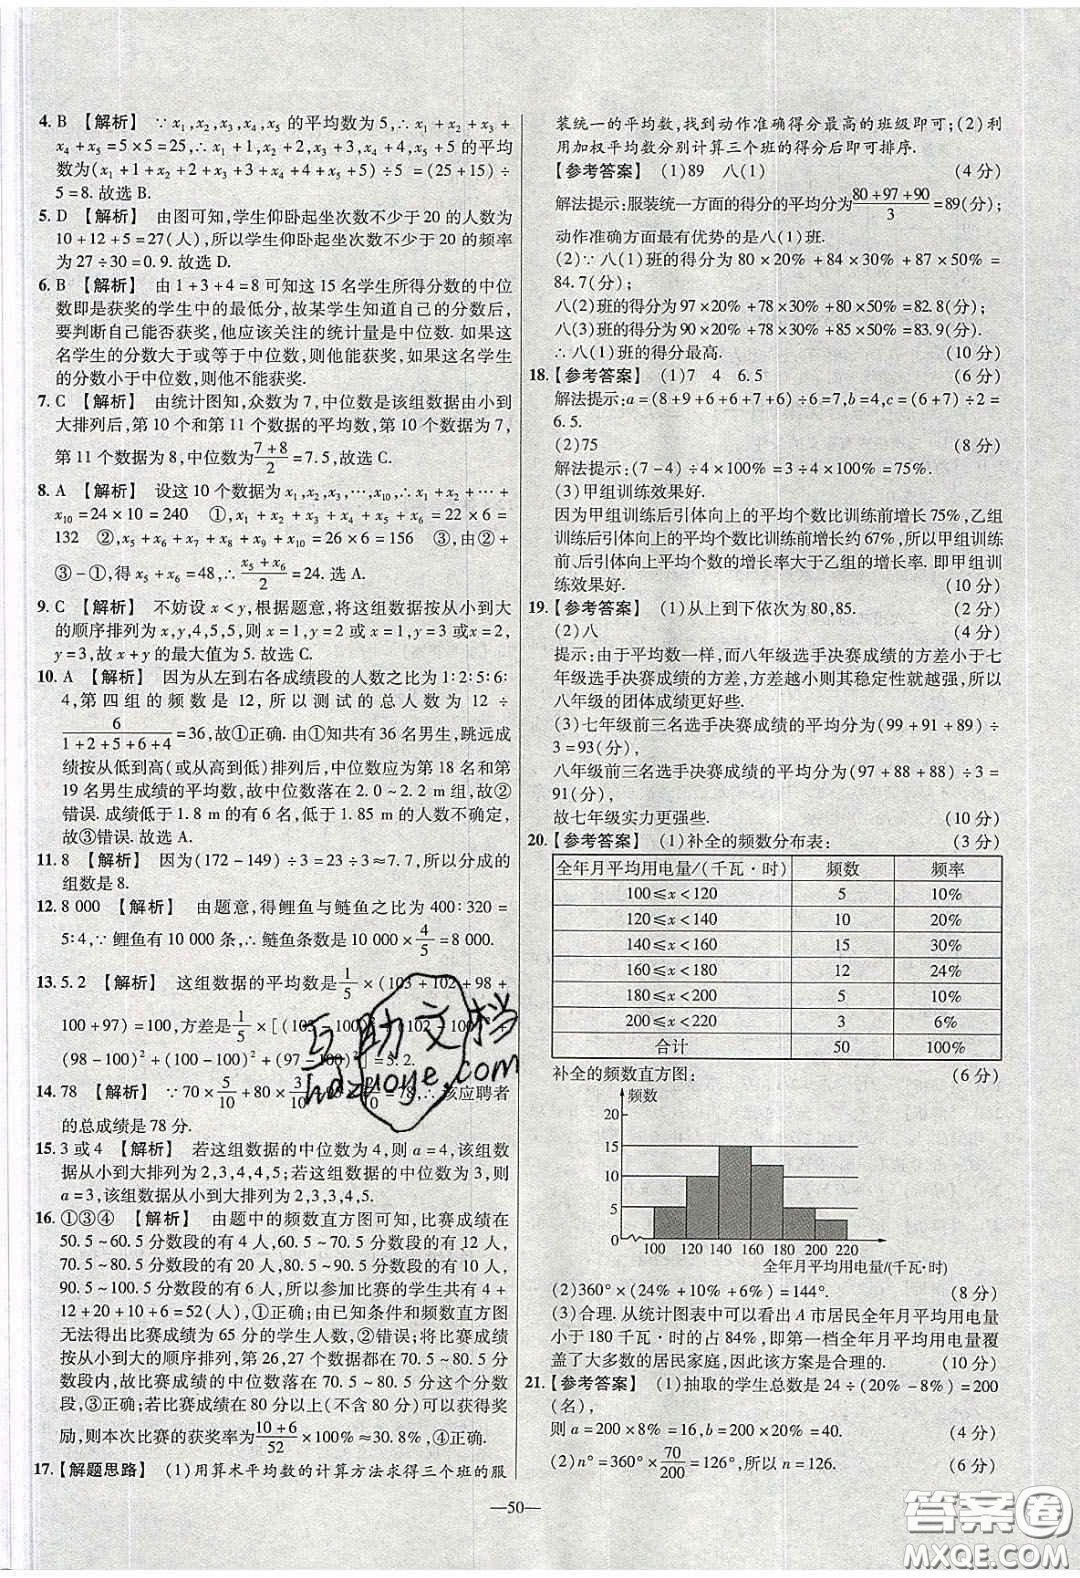 4. B 【解析】 ∵x₁,x₂,x₃,x₄,x₅ 的平均数为5,∴x₁+x₂+x₃+
x₄+x₅=5×5=25,∴x₁+1,x₂+2,x₃+3,x₄+4,x₅+5的平
均数为(x₁+1+x₂+2+x₃+3+x₄+4+x₅+5)÷5=(25+15)÷
5=8.故选B.
5. D 【解析】 由图可知,学生仰卧起坐次数不少于20的人数为
10+12+5=27(人),所以学生仰卧起坐次数不少于20的频率
为27÷30=0.9.故选D.
6. B 【解析】 由1+3+4=8可知这15名学生所得分数的中位
数即是获奖的学生中的最低分,故某学生知道自己的分数后,
要判断自己能否获奖,他应该关注的统计量是中位数.如果这
名学生的分数大于或等于中位数,则他能获奖,如果这名学生
的分数小于中位数,则他不能获奖.
7. C 【解析】 由统计图知,众数为7,中位数是该组数据由小到
大排列后,第10个和第11个数据的平均数,第10个数据为7,
第11个数据为8,中位数为(7+8)/2=7.5,故选C.
8. A 【解析】 设这10个数据为x₁,x₂,x₃,⋯,x₁₀,∴x₁+x₂+⋯+
x₁₀=24×10=240 ①,x₁+x₂+x₃+x₄+x₅+x₆=22×6=
132 ②,x₅+x₆+⋯+x₁₀=26×6=156 ③,由②+
③-①,得x₅+x₆=48,∴(x₅+x₆)/2=24.选A.
9. C 【解析】 不妨设x<y,根据题意,将这组数据按从小到大
的顺序排列为x,y,4,5,5,则x=1,y=2或x=1,y=3或x=2,
y=3,故x+y的最大值为5.故选C.
10. A 【解析】 因为从左到右各成绩段的人数之比为1:2:5:6:
4,第四组的频数是12,所以测试的总人数为12÷
6/(1+2+5+6+4)=36,故①正确.由①知共有36名男生,跳远成
绩按从低到高(或从高到低)排列后,中位数应为第18名和第
19名男生成绩的平均数,故中位数落在2.0~2.2 m组,故②
错误.成绩低于1.8 m的人数为9,低于1.85 m的人数不确定,
故③错误.故选A.
11. 8 【解析】 因为(172-149)÷3=23÷3≈7.7,所以分成的
组数是8.
12. 8 000 【解析】 由题意,得鲤鱼与鲢鱼之比为400:320=
5:4,∵鲤鱼有10 000条,∴鲢鱼条数是10 000×4/5=8 000.
13. 5.2 【解析】 这组数据的平均数是1/5×(103+102+98+
100+97)=100,方差是1/5×[(103-100)²+(102-100)²+
(98-100)²+(100-100)²+(97-100)²]=5.2.
14. 78 【解析】 ∵70×5/10+80×3/10+ =78,∴该应聘者
的总成绩是78分.
15. 3或4 【解析】 若这组数据的中位数为4,则a=4,该组数
据从小到大排列为2,3,4,4,5;若这组数据的中位数为3,则
a=3,该组数据从小到大排列为2,3,3,4,5.
16. ①③④ 【解析】 由题中的频数直方图可知,比赛成绩在
50.5~60.5分数段的有4人,60.5~70.5分数段的有12
人,70.5~80.5分数段的有20人,80.5~90.5分数段的有10人,
90.5~100.5分数段的有6人,所以参加比赛的学生共有4+
12+20+10+6=52(人),①正确;由已知条件和频数直方图
无法得出比赛成绩为65分的学生人数,②错误;将比赛成绩
按从小到大的顺序排列,第26,27个数据都落在70.5~80.5分
数段,故比赛成绩的中位数落在70.5~80.5分这个分数
段,③正确;若比赛成绩在80分以上(不含80分)可以获得奖
励,则本次比赛的获奖率为(10+6)/52×100%≈30.8%,④正确.
17. 【解题思路】 (1)用算术平均数的计算方法求得三个班的服
装统一的平均数,找到动作准确得分最高的班级即可;(2)利
用加权平均数分别计算三个班的得分后即可排序.
【参考答案】 (1)89 八(1) (4分)
解法提示:服装统一方面的得分的平均分为(80+97+90)/3=89(分);
动作准确方面最有优势的是八(1)班.
(2)∵八(1)班的得分为80×20%+84×30%+87×50%=
84.7(分);
八(2)班的得分为97×20%+78×30%+80×50%=82.8(分);
八(3)班的得分为90×20%+78×30%+85×50%=83.9(分).
∴八(1)班的得分最高. (10分)
18. 【参考答案】 (1)7 4 6.5 (6分)
解法提示:a=(8+9+6+6+7+6)÷6=7,b=4,c=(6+7)÷2=
6.5.
(2)75 (8分)
解法提示:(7-4)÷4×100%=3÷4×100%=75%.
(3)甲组训练效果好.
因为甲组训练后引体向上的平均个数比训练前增长75%,乙组
训练后引体向上的平均个数比训练前增长约67%,所以甲组训练
前、后引体向上平均个数的增长率大于乙组的增长率.即甲组训
练效果好. (10分)
19. 【参考答案】 (1)从上到下依次为80,85. (2分)
(2)八 (4分)
提示:由于平均数一样,而八年级选手决赛成绩的方差小于七
年级选手决赛成绩的方差,方差越小则其稳定性就越强,所以
八年级的团体成绩更好些.
(3)七年级前三名选手决赛成绩的平均分为(99+91+89)÷
3=93(分),
八年级前三名选手决赛成绩的平均分为(97+88+88)÷3=
91(分),
故七年级实力更强些. (10分)
20. 【参考答案】 (1)补全的频数分布表: (3分)
全年月平均用电量/(千瓦·时) 频数 频率
100≤x<120 5 10%
120≤x<140 10 20%
140≤x<160 15 30%
160≤x<180 12 24%
180≤x<200 5 10%
200≤x<220 3 6%
合计 50 100%
补全的频数直方图: (6分)
频数
20
15
10
5
0
100 120 140 160 180 200 220
全年月平均用电量/(千瓦·时)
(2)360°×(24%+10%+6%)=144°. (8分)
(3)合理.从统计图表中可以看出A市居民全年月平均用电量
小于180千瓦·时的占84%,即第一档全年月平均用电量覆
盖了大多数的居民家庭,因此该方案是合理的. (10分)
21. 【参考答案】 (1)抽取的学生总数是24÷(20%-8%)=200
(名),
则a=200×8%=16,b=200×20%=40. (4分)
(2)n°=360°×70/200=126°,所以n=126. (6分)
—50—
互助文档
hdzuoye.com
答案圈
MXQE.COM